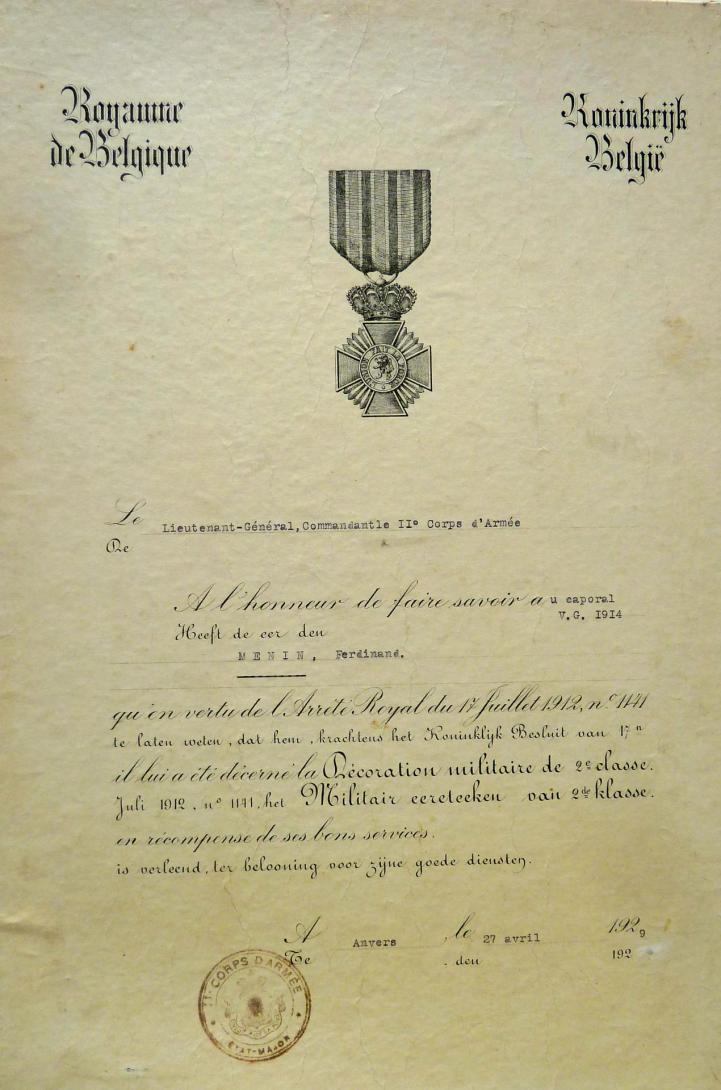 Royaume
de Belgique
Koninkrijk
België
Le Lieutenant-Général,Commandantle IIe Corps d'Armée
De
A l'honneur de faire savoir a u caporal
V.G. 1914
Heeft de eer den
MENIN, Ferdinand.
qu'en vertu de l'Arrêté Royal du 17 Juillet 1912, nº 1141
te laten weten, dat hem, krachtens het Koninklijk Besluit van 17n
il lui a été décerné la Décoration militaire de 2e classe.
Juli 1912, nº 1141, het Militair eereteeken van 2de klasse.
en récompense de ses bons services.
is verleend, ter belooning voor zijne goede diensten.
A Anvers, le 27 avril 1929
Te . den 192
II CORPS D'ARMÉE
ETAT-MAJOR